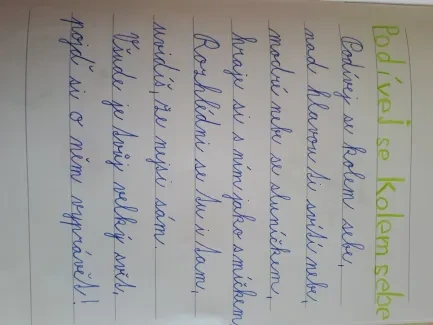 Podívej se kolem sebe
Podívej se kolem sebe,
nad hlavou ti svítí nebe,
modré nebe se sluníčkem,
hraje si s ním jako s míčkem.
Rozhlédni se tu i tam,
uvidíš, že nejsi sám.
Všude je tvůj velký svět,
pojď si o něm vyprávět!